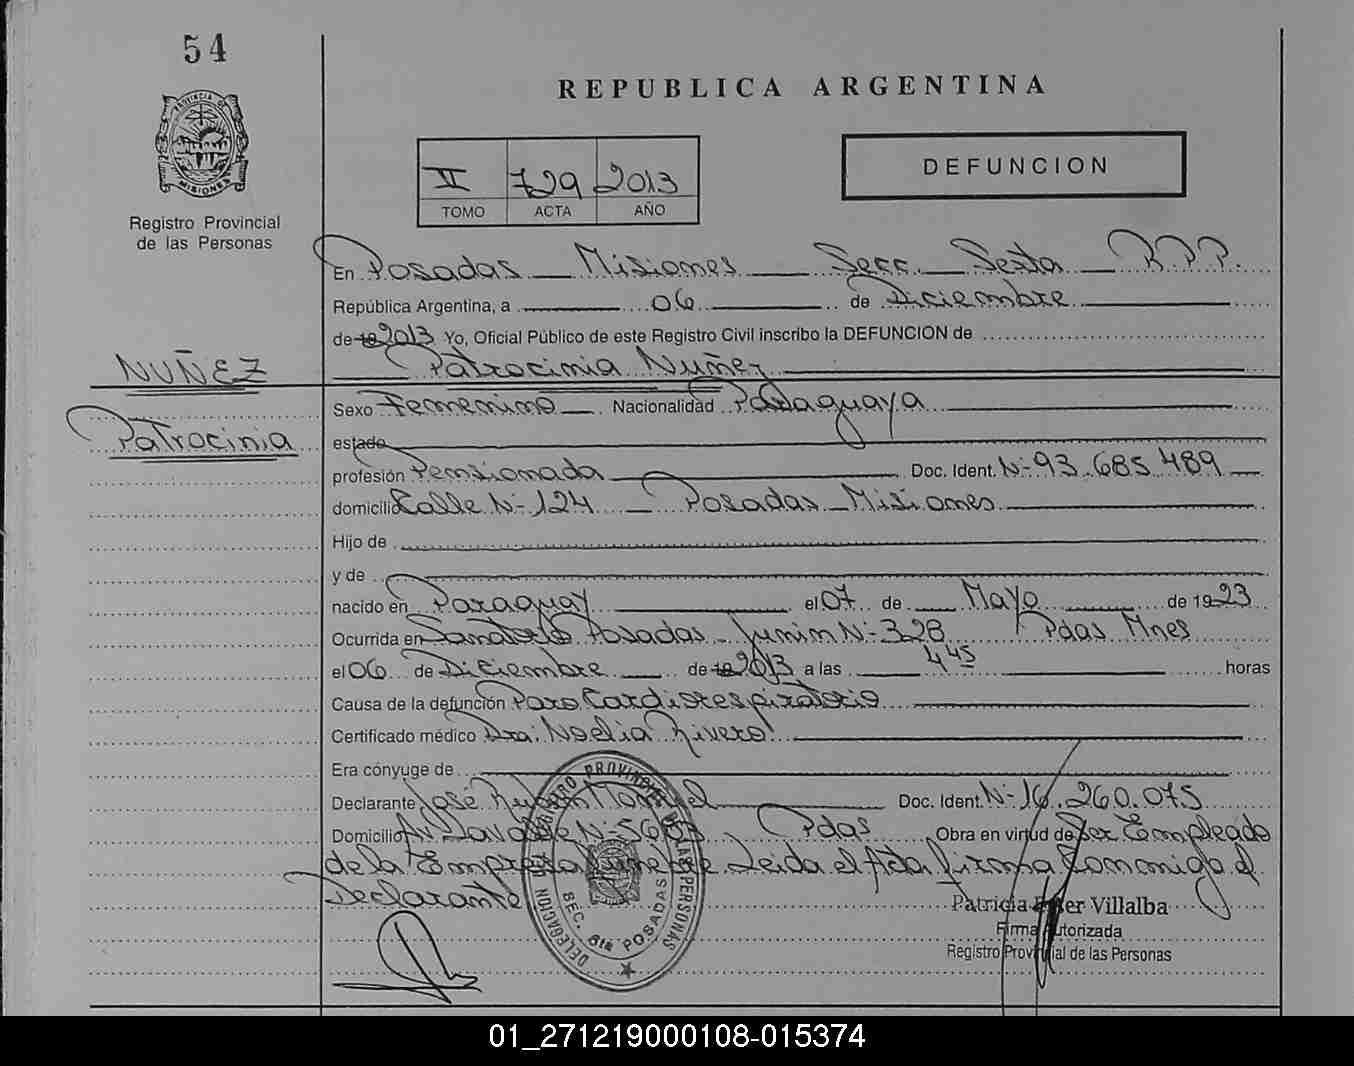 54
REPUBLICA ARGENTINA
PROVINCIA DE MISIONES
Registro Provincial
de las Personas
II 729 2013
TOMO ACTA AÑO
DEFUNCION
En Posadas Misiones Secc. Sesta R.P.P.
República Argentina, a 06 de Diciembre
de 19 2013 Yo, Oficial Público de este Registro Civil inscribo la DEFUNCION de
NUÑEZ
Patrocinia Nuñez
Patrocinia
Sexo Femenino Nacionalidad Paraguaya
estado
profesión Pensionada Doc. Ident. Nº 93.685.489
domicilio Calle Nº 124 Posadas Misiones
Hijo de
y de
nacido en Paraguay el 07 de Mayo de 1923
Ocurrida en Sanatorio Posadas Junin Nº 328 Pdas Mnes
el 06 de Diciembre de 19 2013 a las 4 45 horas
Causa de la defunción Paro Cardiorespiratorio
Certificado médico Dra. Noelia Rivero
Era cónyuge de
Declarante José Ruben Doc. Ident. Nº 16.260.075
Domicilio Av. Nº Pdas Obra en virtud de Ser Empleado
de la Empresa Funebre Leida el Acta firma Conmigo el
Declarante
DELEGACION REGISTRO PROVINCIAL DE LAS PERSONAS
SEC. 6ta POSADAS
Patricia Ester Villalba
Firma Autorizada
Registro Provincial de las Personas
01_271219000108-015374